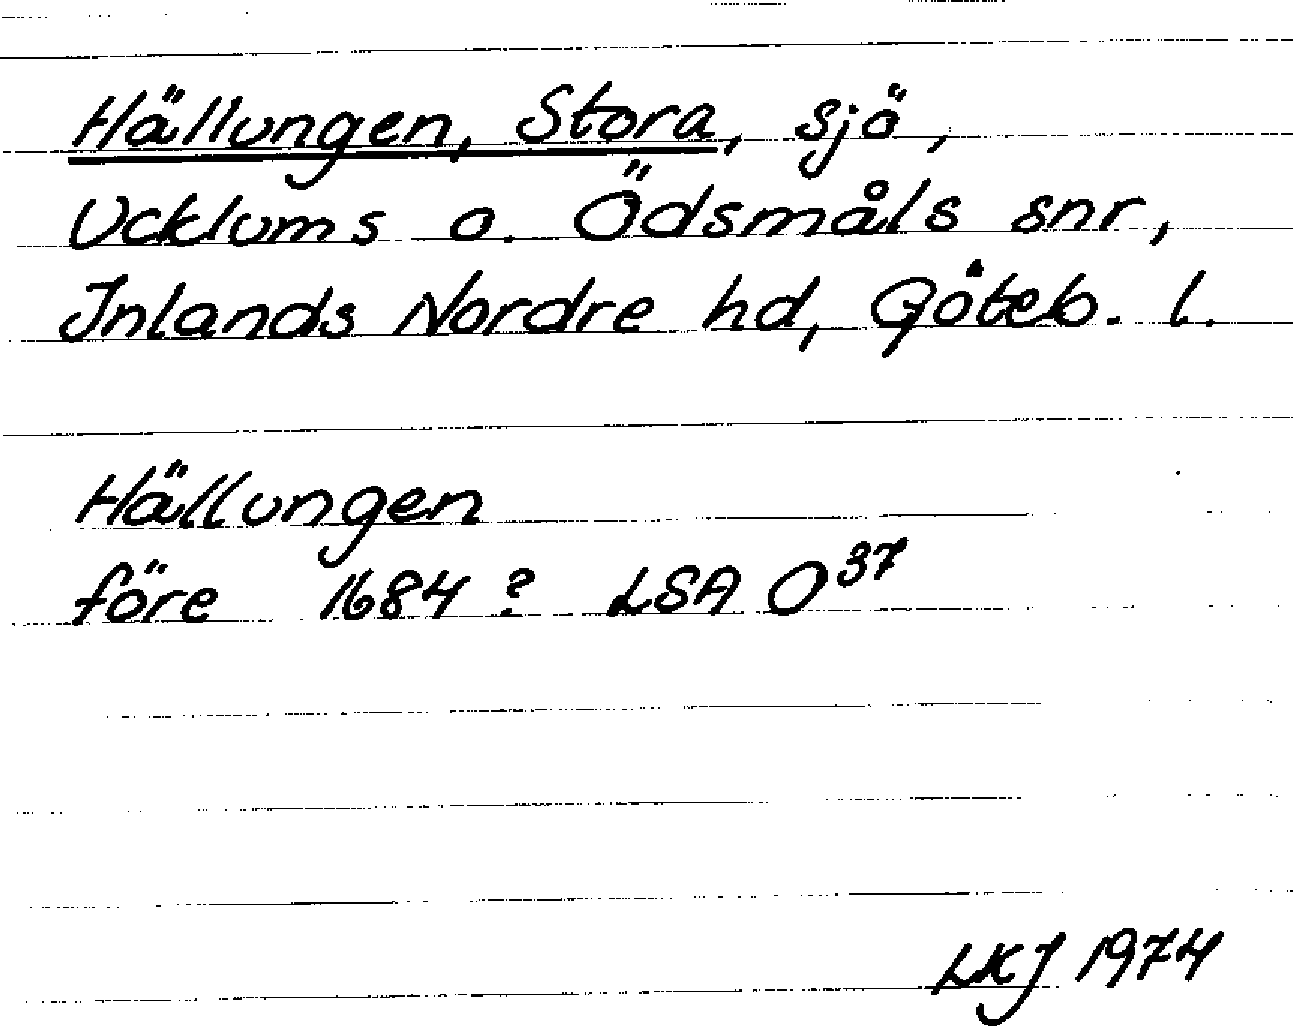 Hällungen, Stora, sjö,
Ucklums o. Ödsmåls snr,
Inlands Nordre hd, Göteb. l.
Hällungen
före 1684? LSA O³⁷
LKJ 1974